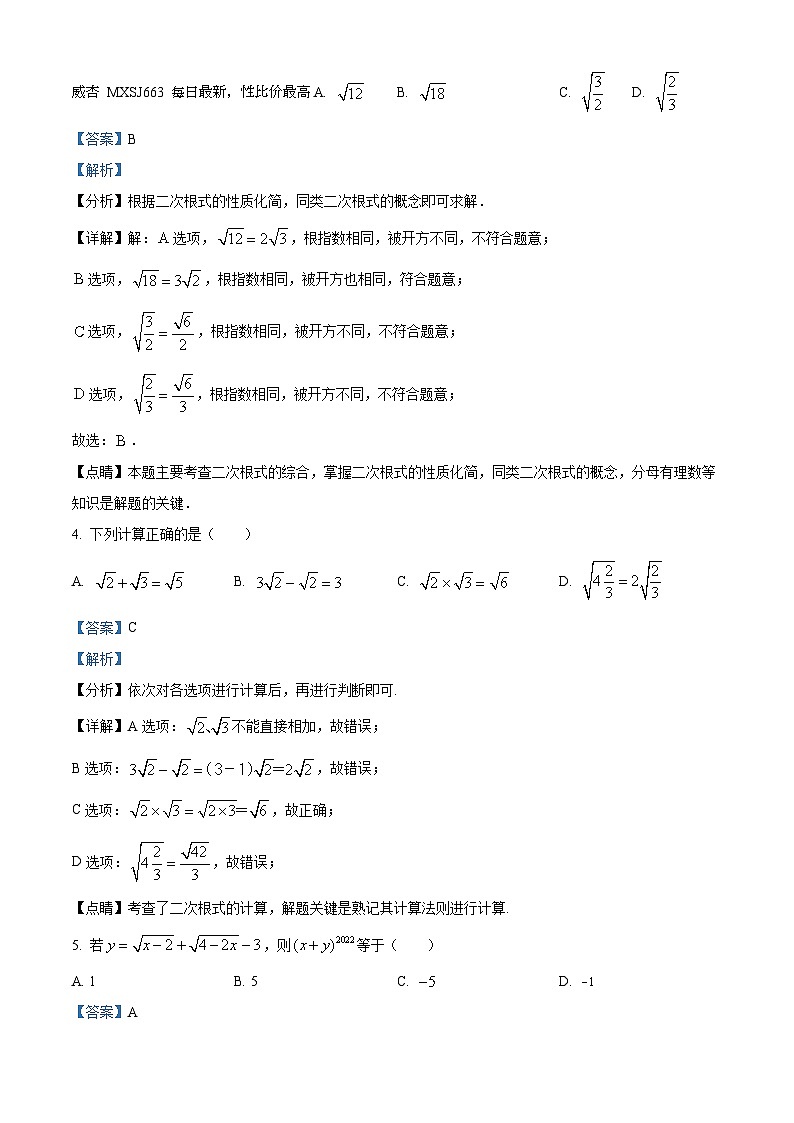 威杏 MXSJ663 每日最新，性比价最高A. √12 B. √18 C. √(3/2) D. √(2/3)
【答案】B
【解析】
【分析】根据二次根式的性质化简，同类二次根式的概念即可求解．
【详解】解：A选项，√12 = 2√3，根指数相同，被开方不同，不符合题意；
B选项，√18 = 3√2，根指数相同，被开方也相同，符合题意；
C选项，√(3/2) = √6/2，根指数相同，被开方不同，不符合题意；
D选项，√(2/3) = √6/3，根指数相同，被开方不同，不符合题意；
故选：B．
【点睛】本题主要考查二次根式的综合，掌握二次根式的性质化简，同类二次根式的概念，分母有理数等
知识是解题的关键．
4. 下列计算正确的是（ ）
A. √2+√3=√5 B. 3√2−√2=3 C. √2×√3=√6 D. √(4 2/3)=2√(2/3)
【答案】C
【解析】
【分析】依次对各选项进行计算后，再进行判断即可.
【详解】A选项：√2、√3不能直接相加，故错误；
B选项：3√2−√2=(3−1)√2=2√2，故错误；
C选项：√2×√3=√(2×3)=√6，故正确；
D选项：√(4 2/3)=√42/3，故错误；
【点睛】考查了二次根式的计算，解题关键是熟记其计算法则进行计算.
5. 若y=√(x−2)+√(4−2x)−3，则(x+y)²⁰²²等于（ ）
A. 1 B. 5 C. −5 D. -1
【答案】A